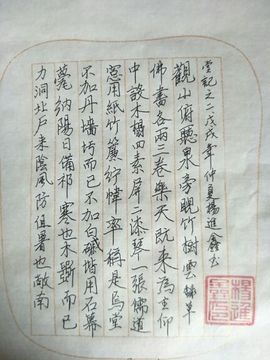 力洞北戶來陰風防徂暑也敞南
甍納陽日備祁寒也木斲而已
不加丹墻圬而已不加白磩階用石冪
窓用紙竹簾紵幃率稱是焉堂
中設木榻四素屏二漆琴一張儒道
佛書各兩三卷樂天既來為主仰
觀山俯聽泉旁睨竹樹雲錦草
堂記之二戊戌年仲夏楊進鑫書